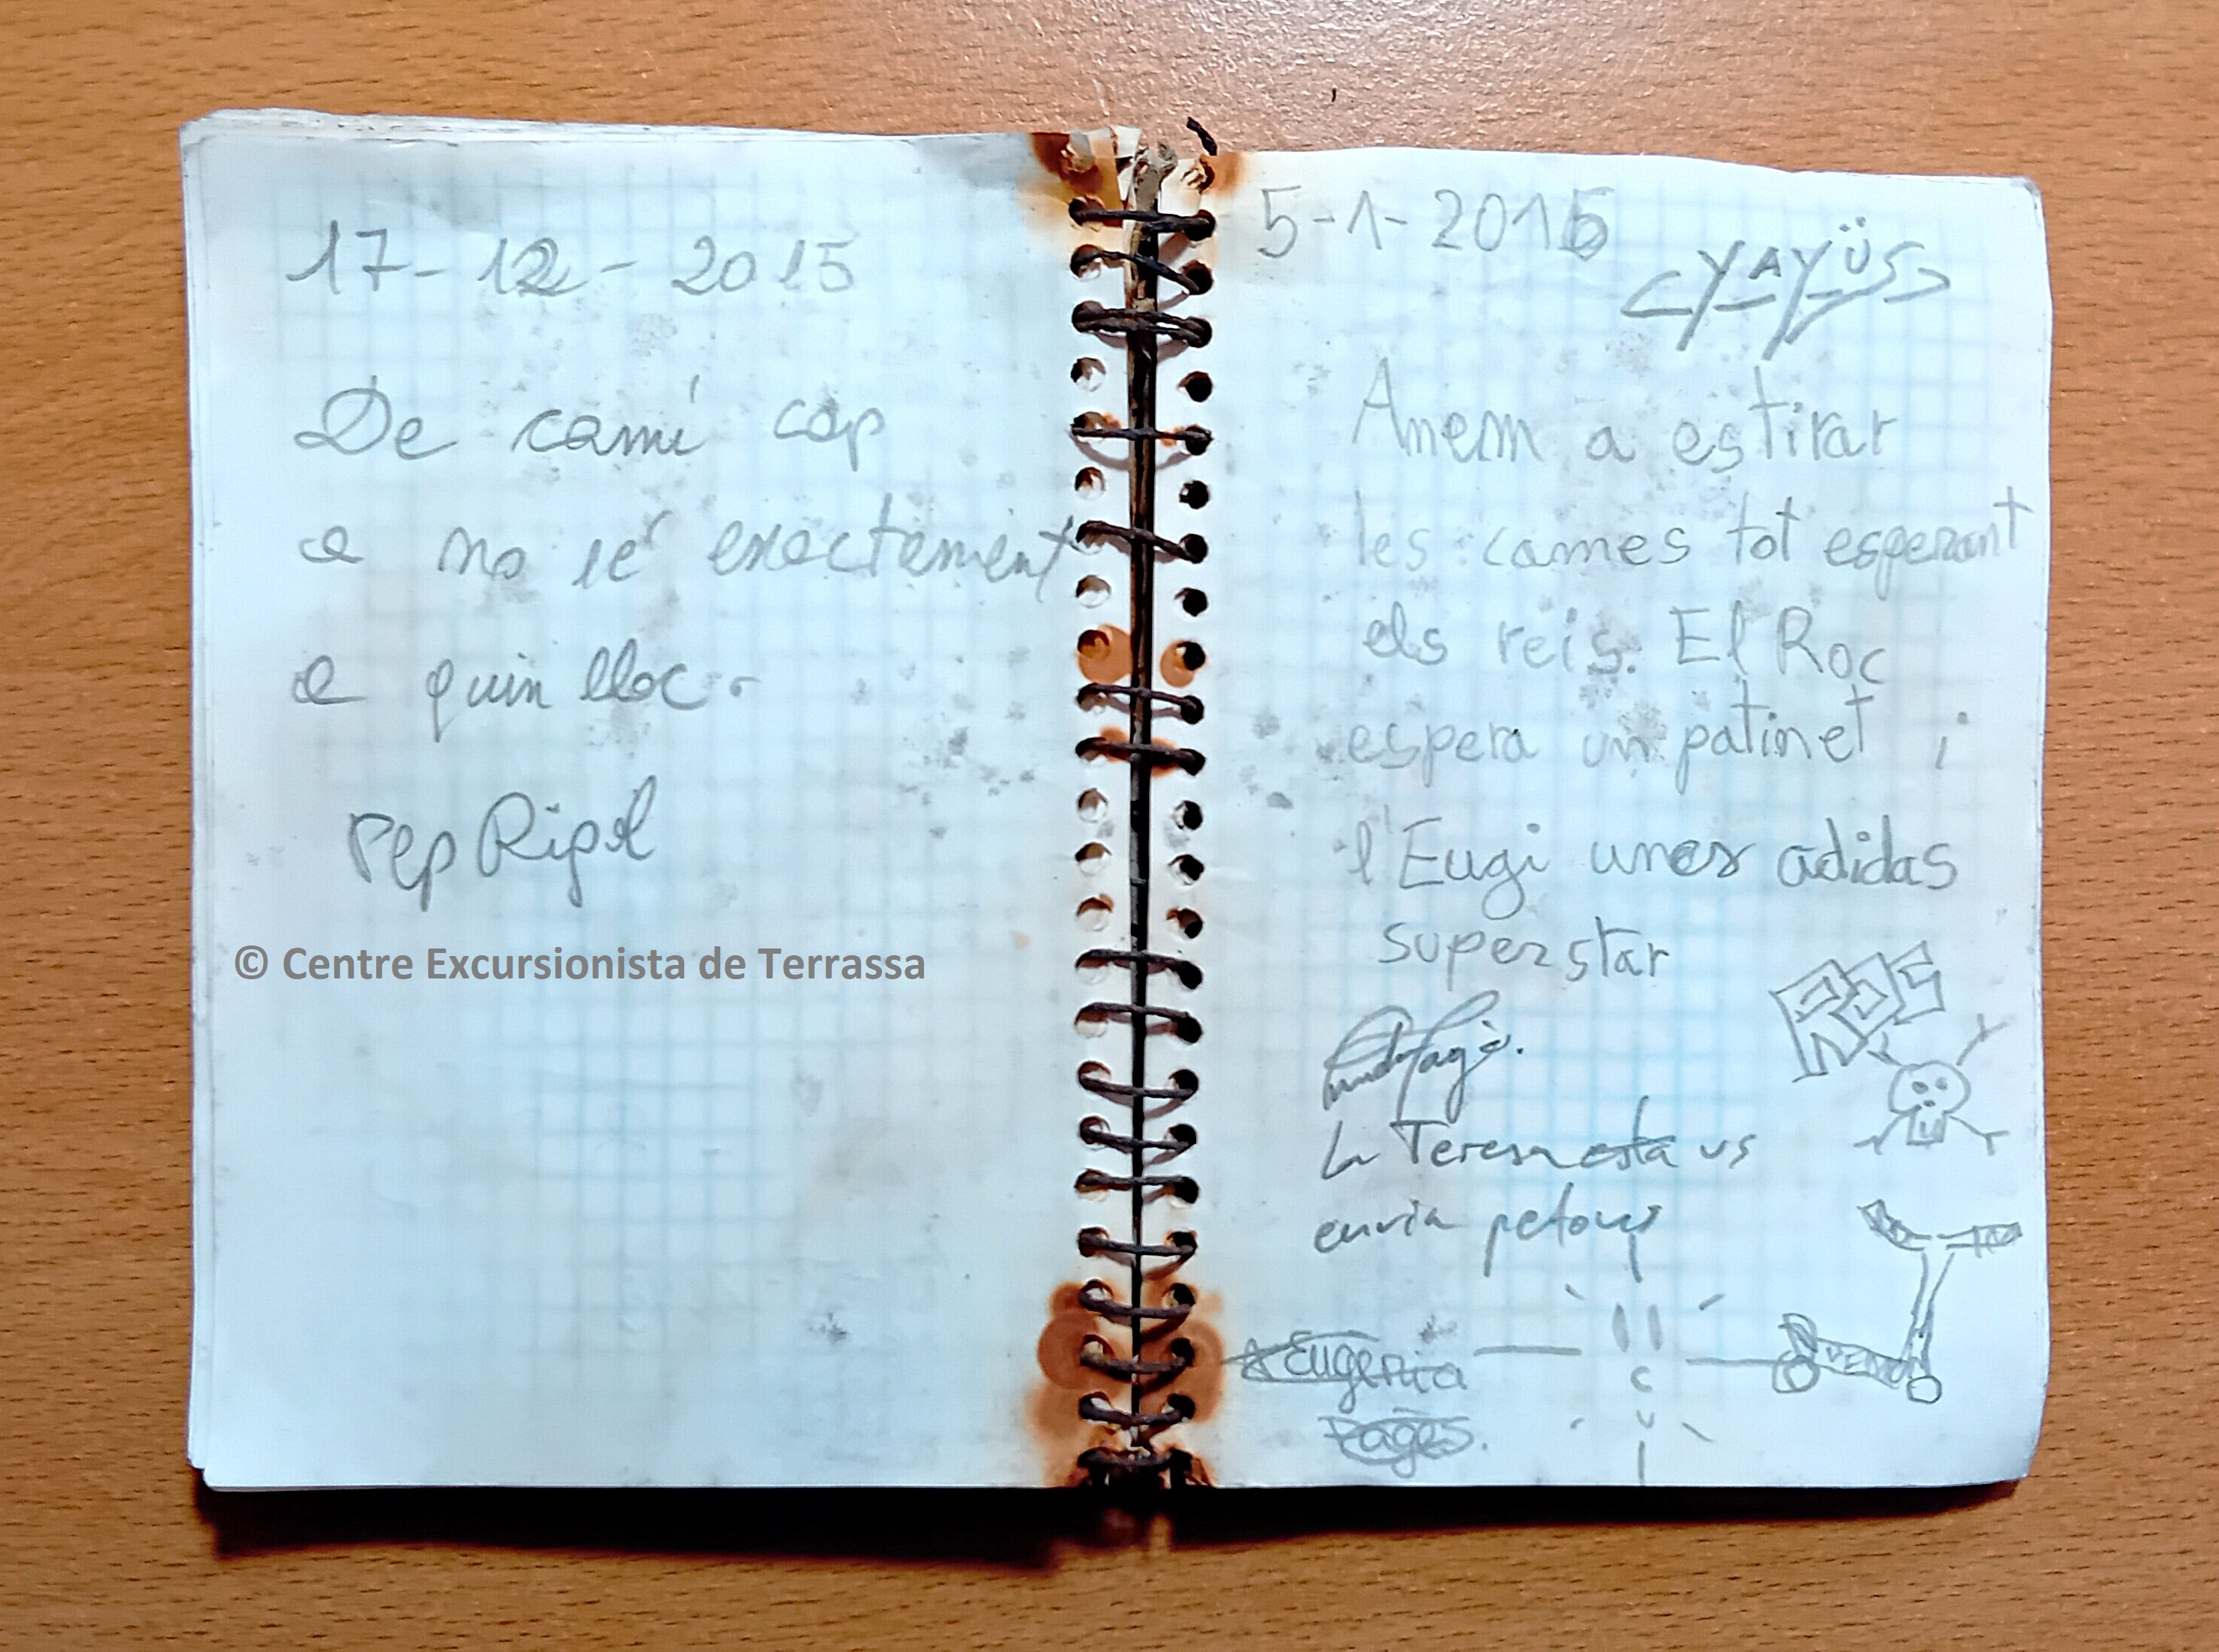 17-12-2015
De camí cap
a no se exactament
a quin lloc.
Pep Rigol
© Centre Excursionista de Terrassa
5-1-2016
YAYÜS
Anem a estirar
les cames tot esperant
els reis. El Roc
espera un patinet i
l'Eugi unes adidas
superstar
ROC
La Teresa esta us
envia petons
Eugenia
Pagès.